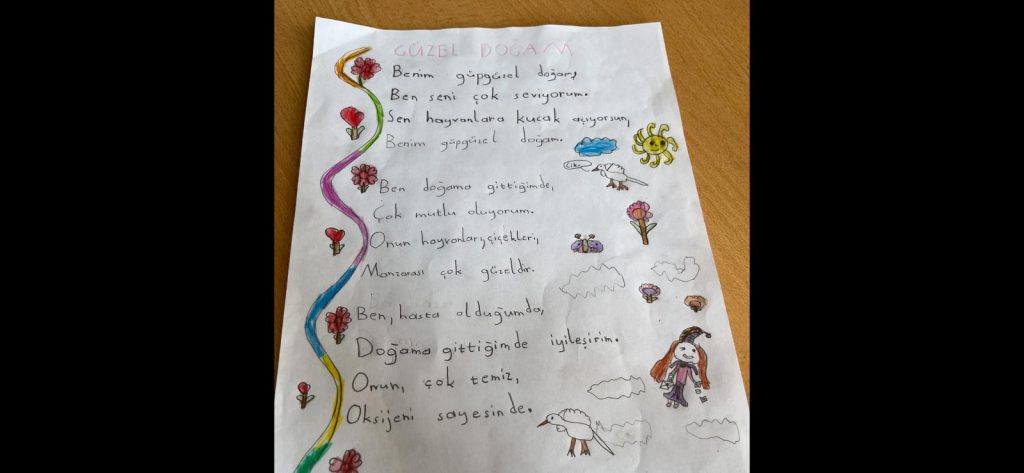 GÜZEL DOĞAM
Benim güpgüsel doğam,
Ben seni çok seviyorum.
Sen hayvanlara kucak açıyorsun,
Benim güpgüsel doğam.
Ben doğama gittiğimde,
Çok mutlu oluyorum.
Onun hayvanları, çiçekleri,
Manzarası çok güzeldir.
Ben, hasta olduğumda,
Doğama gittiğimde iyileşirim.
Onun, çok temiz,
Oksijeni sayesinde.